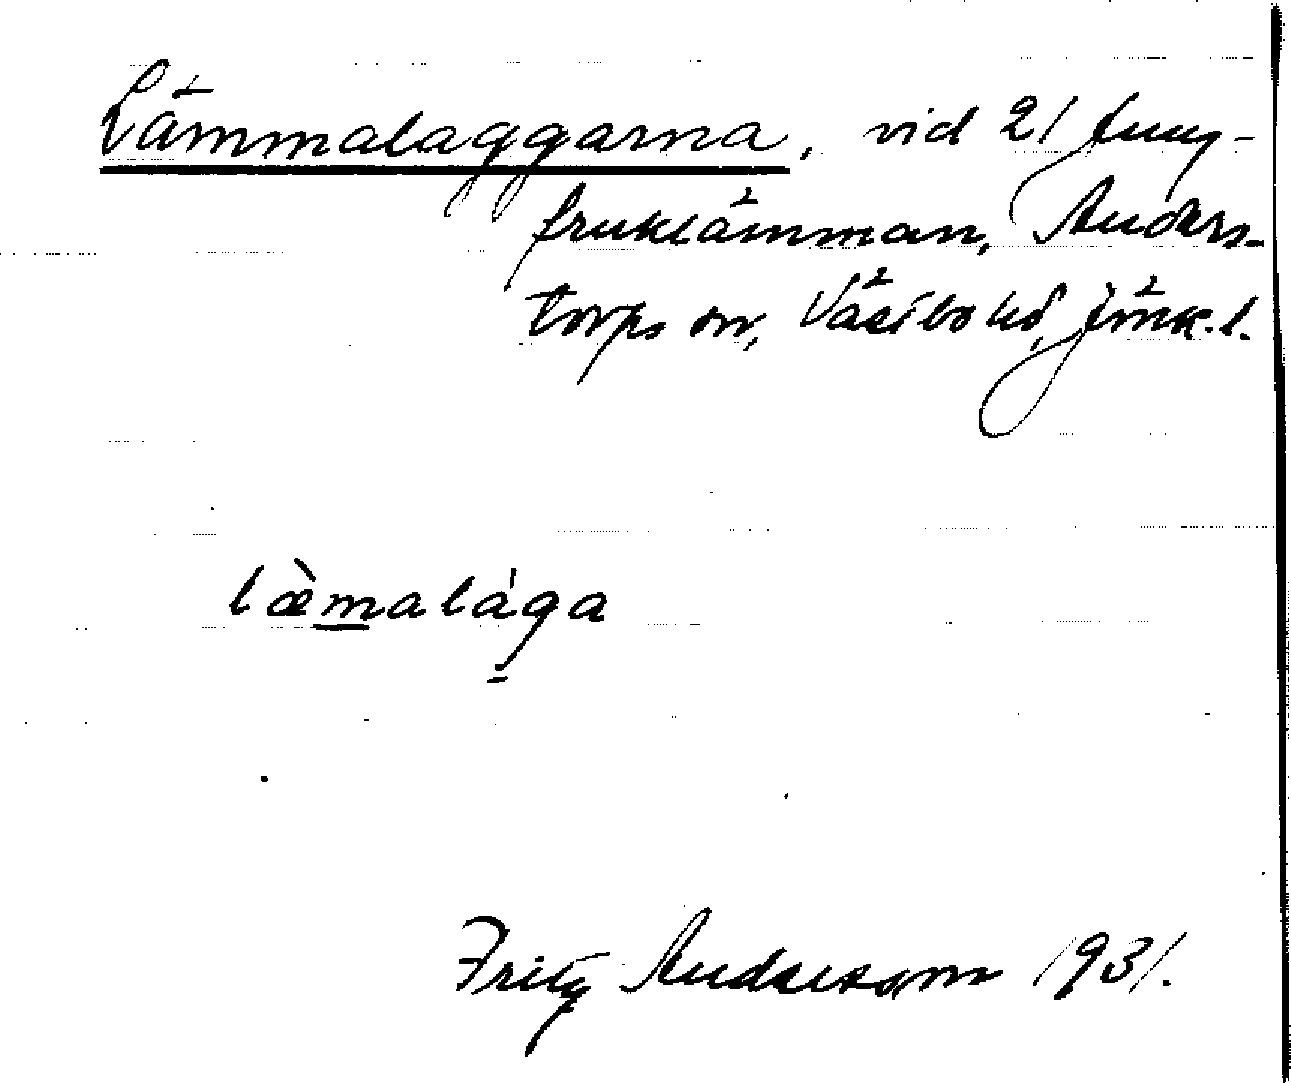 Lämmalaggarna, vid 21 Jung-
fruklämman, Anders-
torps sn, Västbo hd, Jönk. l.
læ̀malága
Fritz Andersson 1931.